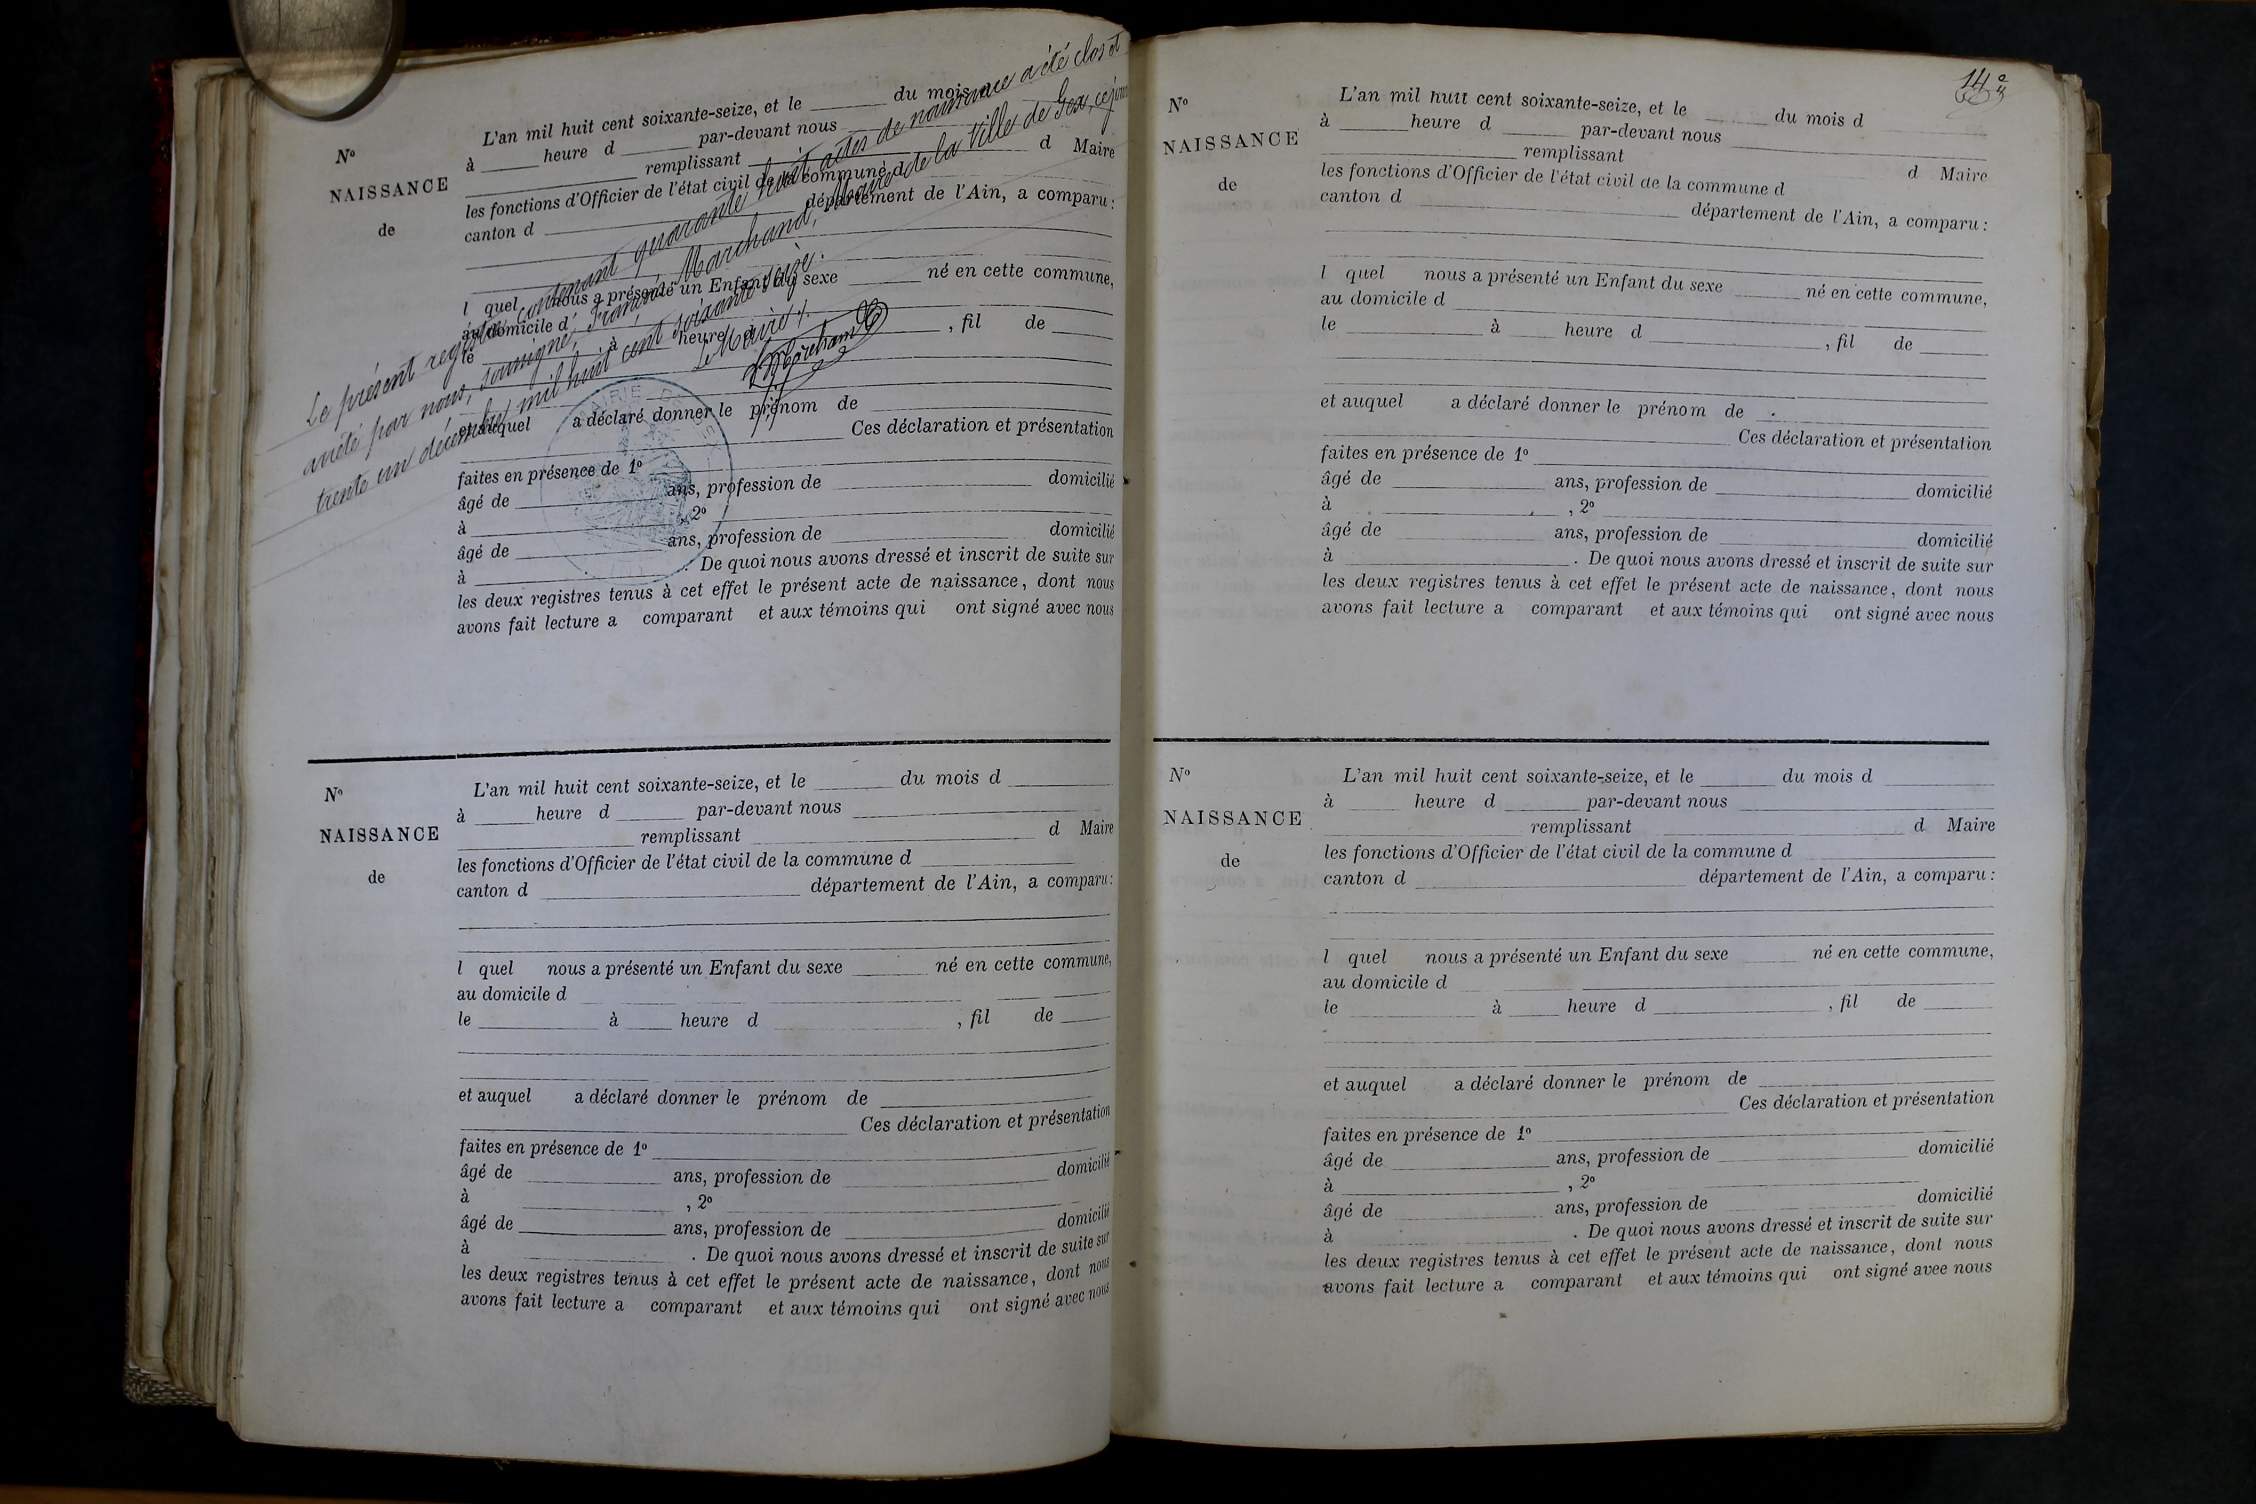 Nº
NAISSANCE
de
L'an mil huit cent soixante-seize, et le du mois d
à heure d par-devant nous
remplissant d Maire
les fonctions d'Officier de l'état civil de la commune d
canton d département de l'Ain, a comparu :
l quel nous a présenté un Enfant du sexe né en cette commune,
au domicile d
le à heure d , fil de
et auquel a déclaré donner le prénom de
Ces déclaration et présentation
faites en présence de 1º
âgé de ans, profession de domicilié
à , 2º
âgé de ans, profession de domicilié
à . De quoi nous avons dressé et inscrit de suite sur
les deux registres tenus à cet effet le présent acte de naissance, dont nous
avons fait lecture a comparant et aux témoins qui ont signé avec nous
Le présent registre contenant quarante huit actes de naissance a été clos et
arrêté par nous, soussigné, François Marchand, Maire de la Ville de Gex, ce jour
trente un décembre mil huit cent soixante seize.
Le Maire,
Marchand
MAIRIE DE GEX
Nº
NAISSANCE
de
L'an mil huit cent soixante-seize, et le du mois d
à heure d par-devant nous
remplissant d Maire
les fonctions d'Officier de l'état civil de la commune d
canton d département de l'Ain, a comparu :
l quel nous a présenté un Enfant du sexe né en cette commune,
au domicile d
le à heure d , fil de
et auquel a déclaré donner le prénom de
Ces déclaration et présentation
faites en présence de 1º
âgé de ans, profession de domicilié
à , 2º
âgé de ans, profession de domicilié
à . De quoi nous avons dressé et inscrit de suite sur
les deux registres tenus à cet effet le présent acte de naissance, dont nous
avons fait lecture a comparant et aux témoins qui ont signé avec nous
Nº
NAISSANCE
de
L'an mil huit cent soixante-seize, et le du mois d
à heure d par-devant nous
remplissant d Maire
les fonctions d'Officier de l'état civil de la commune d
canton d département de l'Ain, a comparu :
l quel nous a présenté un Enfant du sexe né en cette commune,
au domicile d
le à heure d , fil de
et auquel a déclaré donner le prénom de
Ces déclaration et présentation
faites en présence de 1º
âgé de ans, profession de domicilié
à , 2º
âgé de ans, profession de domicilié
à . De quoi nous avons dressé et inscrit de suite sur
les deux registres tenus à cet effet le présent acte de naissance, dont nous
avons fait lecture a comparant et aux témoins qui ont signé avec nous
Nº
NAISSANCE
de
L'an mil huit cent soixante-seize, et le du mois d
à heure d par-devant nous
remplissant d Maire
les fonctions d'Officier de l'état civil de la commune d
canton d département de l'Ain, a comparu :
l quel nous a présenté un Enfant du sexe né en cette commune,
au domicile d
le à heure d , fil de
et auquel a déclaré donner le prénom de
Ces déclaration et présentation
faites en présence de 1º
âgé de ans, profession de domicilié
à , 2º
âgé de ans, profession de domicilié
à . De quoi nous avons dressé et inscrit de suite sur
les deux registres tenus à cet effet le présent acte de naissance, dont nous
avons fait lecture a comparant et aux témoins qui ont signé avee nous